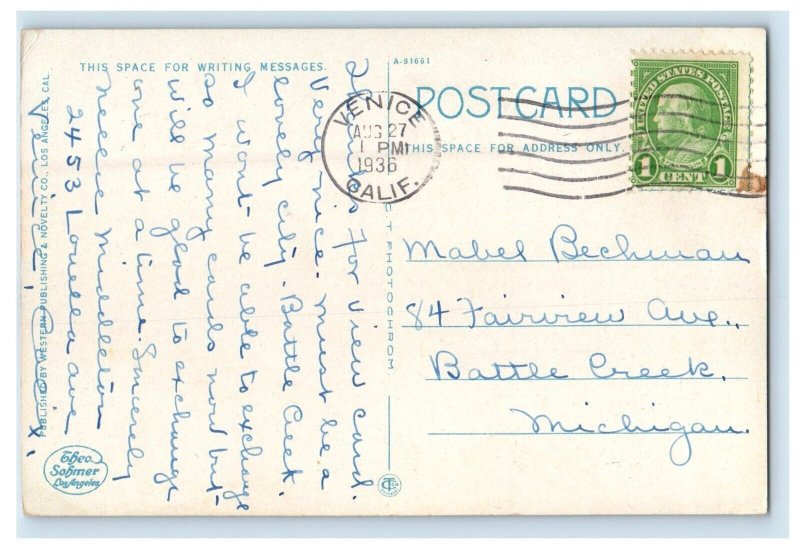 THIS SPACE FOR WRITING MESSAGES.
A-91661
POSTCARD
THIS SPACE FOR ADDRESS ONLY.
VENICE
AUG 27
1 PM
1936
CALIF.
UNITED STATES POSTAGE
1 CENT 1
Thanks for View card.
Very nice. Must be a
lovely city. Battle Creek.
I wont be able to exchange
so many cards now but
will be glad to exchange
one at a time. Sincerely
Nellie Middleton
2453 Louella ave
Venice,
Mabel Bechman
84 Fairview Ave.,
Battle Creek,
Michigan.
PUBLISHED BY WESTERN PUBLISHING & NOVELTY CO., LOS ANGELES, CAL.
PHOTOCHROM
Theo.
Sohmer
Los Angeles